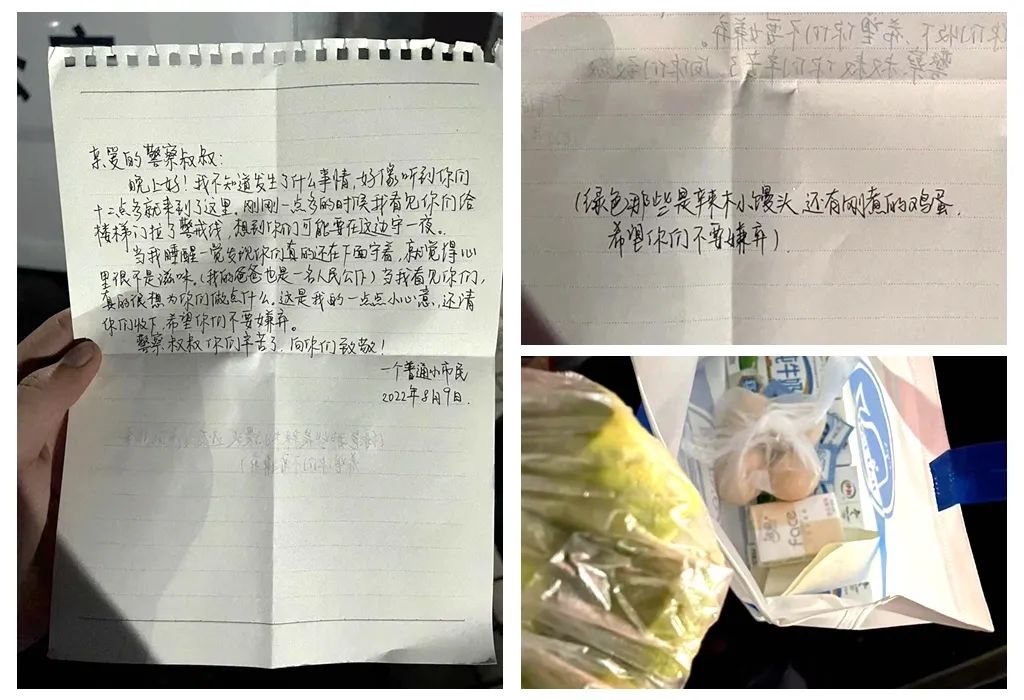 亲爱的警察叔叔：
晚上好！我不知道发生了什么事情，好像听到你们
十二点多就来到了这里，刚刚一点多的时候我看见你们给
楼梯门拉了警戒线，想到你们可能要在这边守一夜。
当我睡醒一觉发现你们真的还在下面守着，就觉得心
里很不是滋味。（我的爸爸也是一名人民公仆）当我看见你们，
真的很想为你们做点什么。这是我的一点点小心意，还请
你们收下，希望你们不要嫌弃。
警察叔叔你们辛苦了，向你们致敬！
一个普通小市民
2022年8月9日.
（绿色）那些是辣木小馒头 还有刚煮的鸡蛋，
希望你们不要嫌弃）
face